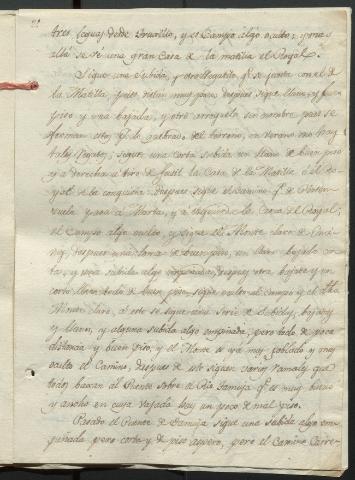 tres leguas desde Truxillo, y el Campo algo oculto; y mas
allá se vé una gran Casa de la matilla el Rosal.
Sigue una subida, y otro Regatito qe. se junta con el de
la Matilla, piso
y una bajada, y otro arroyuelo sin nombre pues se
forman estos pr. lo quebrado del terreno, en verano no hay
tales Regatos; sigue una corta subida un llano de buen piso
y a derecha a tiro de fusil la Casa de la Matilla ó el Ro-
sal de la conquista. Despues sigue el Camino qe. de
para a Marta, y a izquierda la Casa de
el Campo algo suelto, y sigue el Monte claro de Enci-
nas, despues una loma de buen piso, un llano bajada cor-
ta, y una subida algo empinada, despues otra bajada y un
corto llano todo de buen piso, sigue suelto el campo y el
Monte claro, á esto se sigue una serie de subidas, bajadas
y llanos, y alguna subida algo empinada, pero todo de poca
distancia y buen piso, y el Monte se va muy poblado y muy
oculto el Camino, despues de este siguen varios ramales que
todos bajan al Puente sobre el Rio Tamuja qe. es muy bueno
y ancho en cuya bajada hay un poco de mal piso.
Pasado el Puente de Tamuja sigue una subida algo em-
pinada pero corta y de piso aspero, pero el Camino Carre-